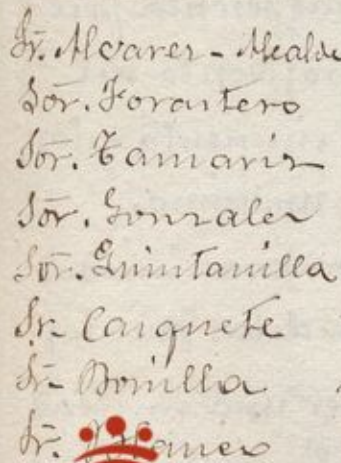 Sr. Alvarez - Alcalde
Sor. Forastero
Sor. Tamariz
Sor. Gonzalez
Sor. Quintanilla
Sr. Caiquete
Sr. Bonilla
Sr.